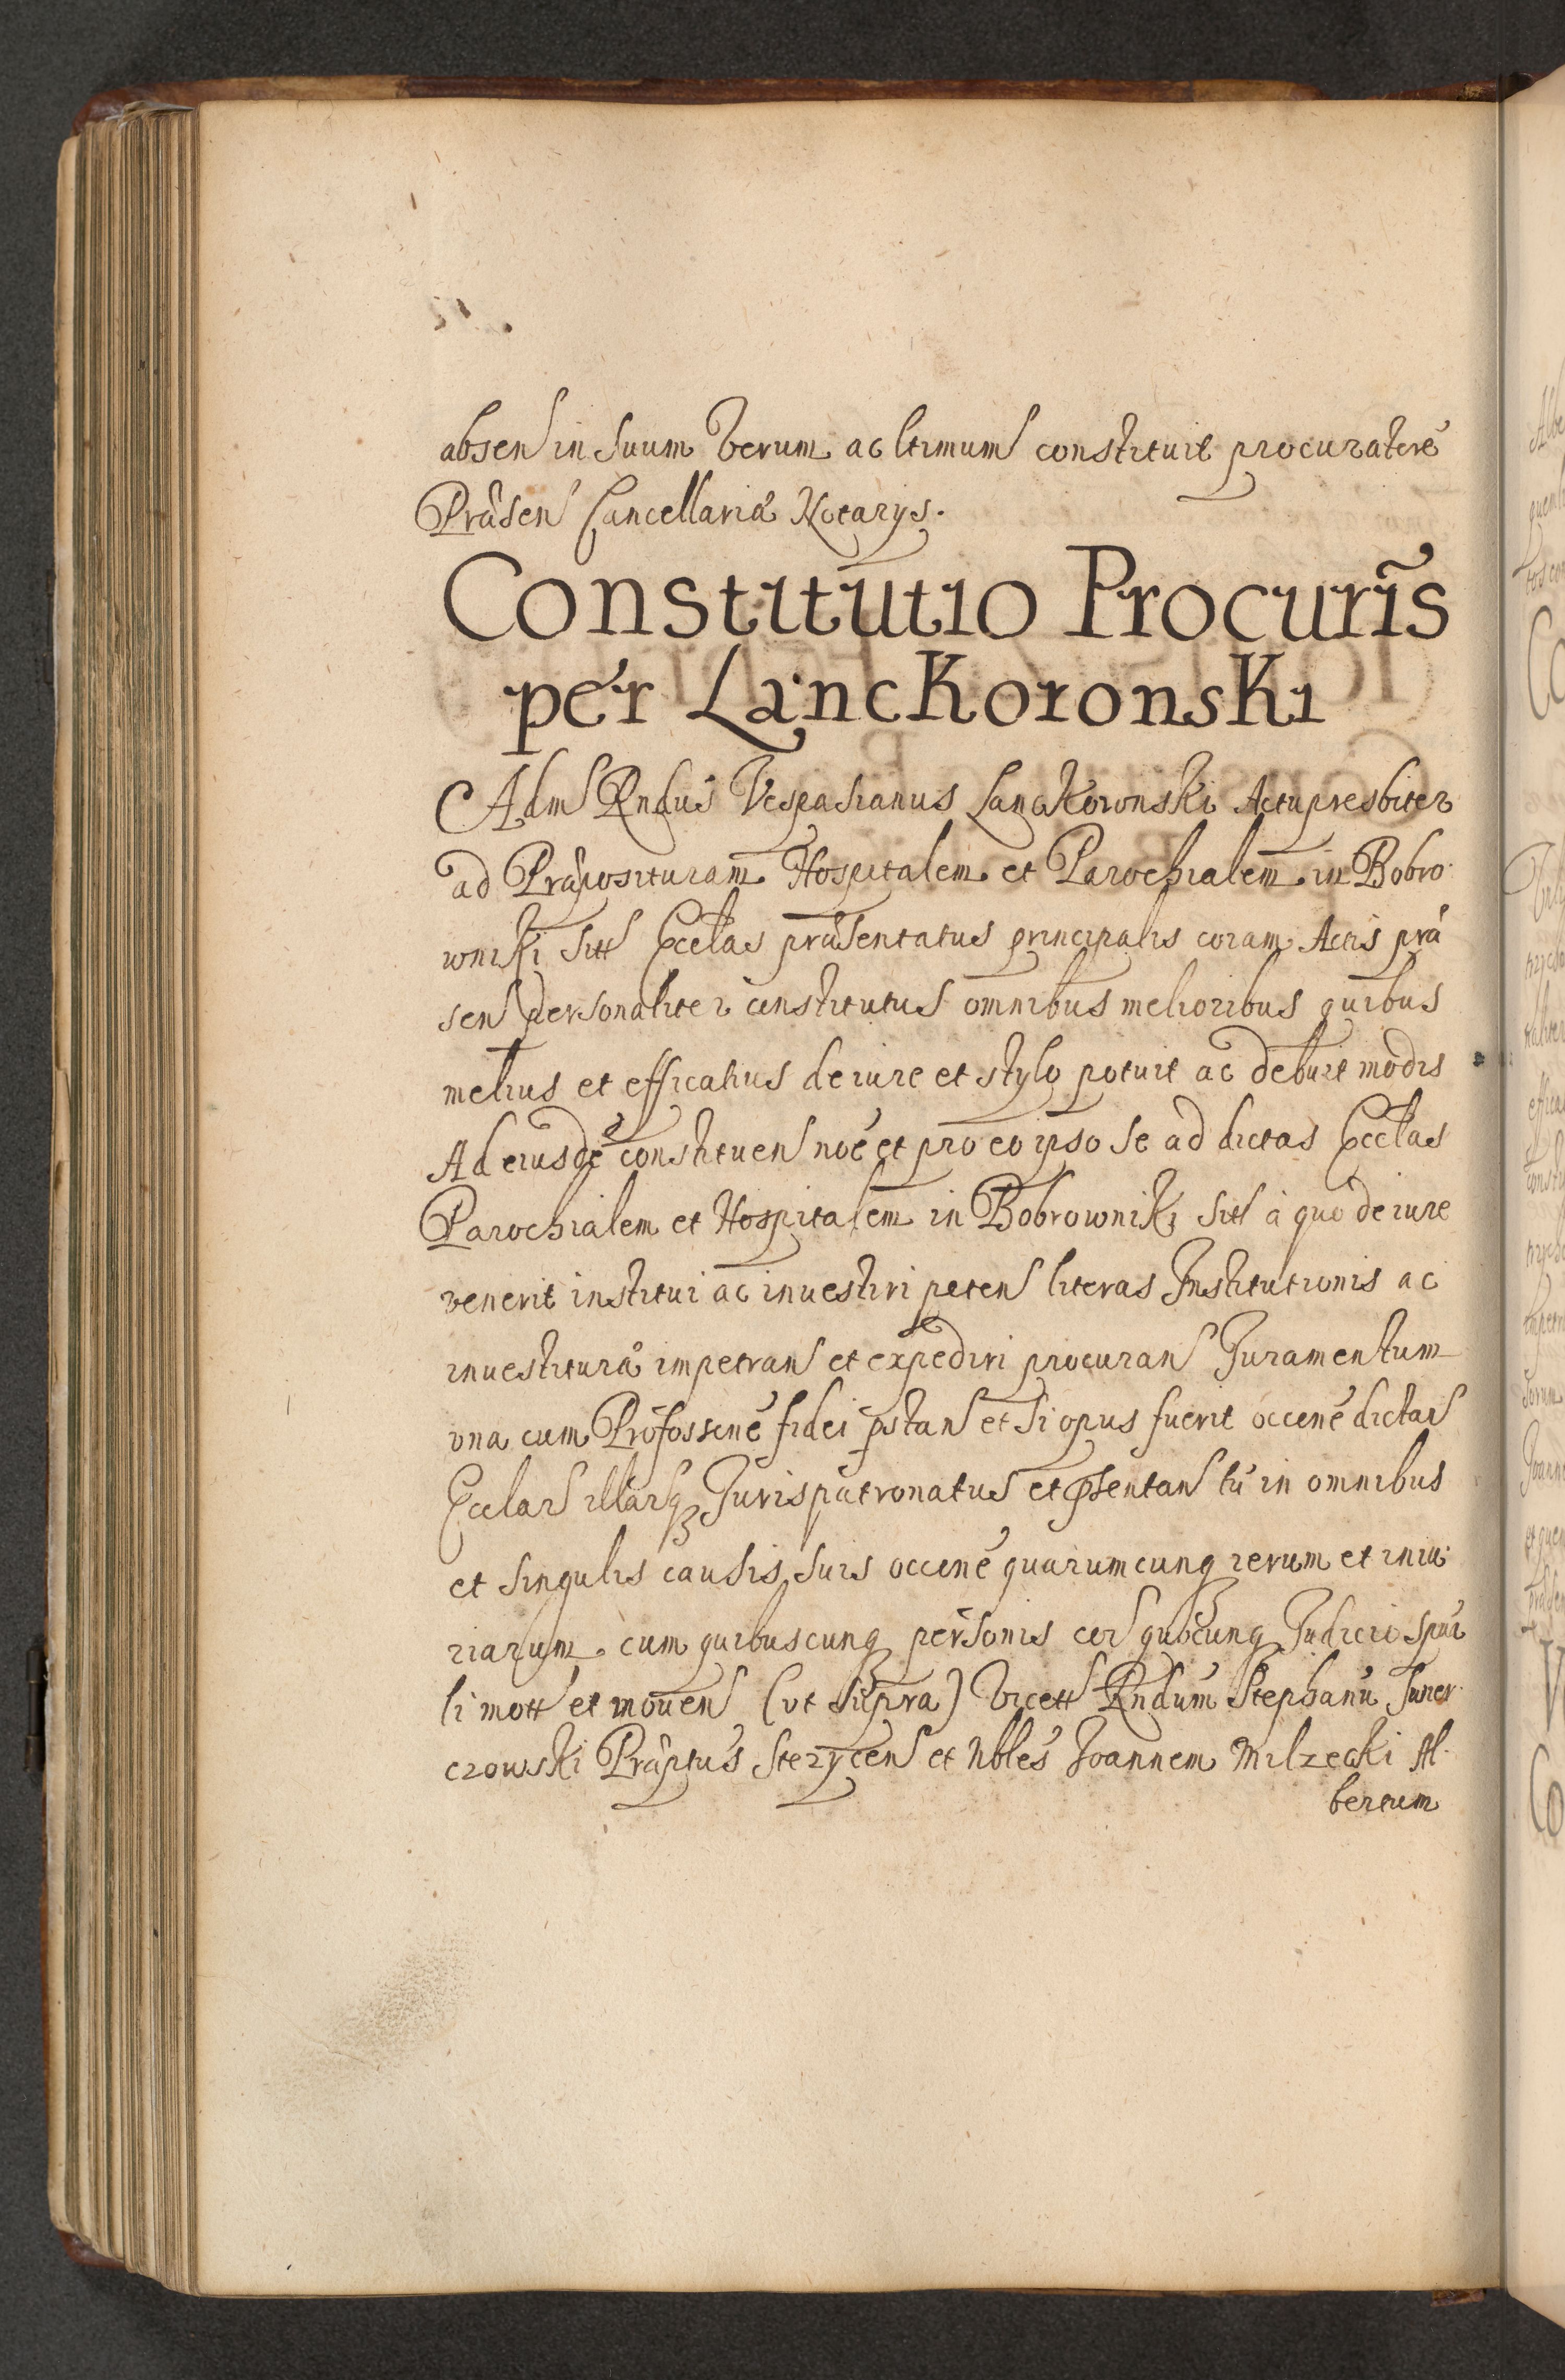 absen in Suum Verum ac ltimum constituit procuratorē
Præsen Cancellariæ Notarys.
Constitutio Procuris̃
per Lanckoronski
Adm Rndus Vespasianus Lanckoronski Actupresbiter
ad Præposituram Hospitalem et Parochialem in Bobro
wniki sitt Eccłas præsentatus principalis coram Actis præ
sen personaliter constitutus omnibus melioribus quibus
melius et efficatius de iure et stylo potuit ac debuit modis
Ad eiusdē constituen noē et pro eo ipso se ad dictas Eccłas
Parochialem et Hospitalem in Bobrowniki sitt à quo de iure
venerit institui ac inuestiri peten literas Institutionis ac
inuestituræ impetran et expediri procuran Juramentum
vna cum Profossionē fidei pstan et si opus fuerit occonē dictar
Ecclar illarq Jurispatronatus et psentan tū in omnibus
et singulis causis suis occonē quarumcunq rerum et iniu
riarum cum quibuscunq personis cor quocunq Judicio spūa
li mott et mouen (vt supra) Vicett Rndum Stephanū Suner
czowski Præptus Sterycen et Nbles Joannem Milzecki Al
bertum